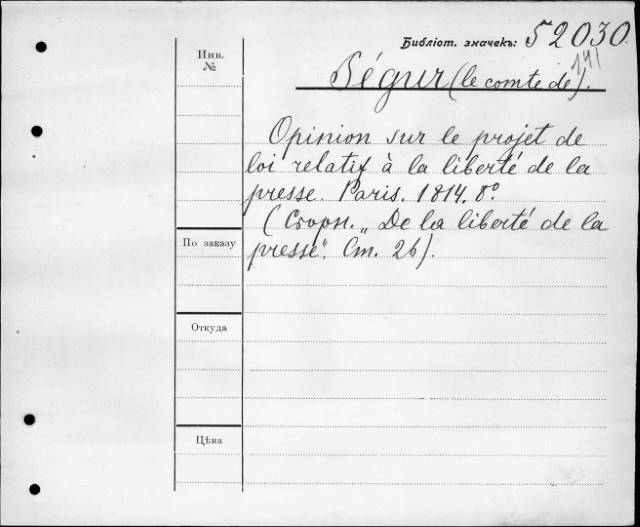 Библіот. значекъ: 52030
141
Инв.
№
Ségur (le comte de).
Opinion sur le projet de
loi relatif à la liberté de la
presse. Paris. 1814. 8º.
(Сборн. „De la liberté de la
presse“. Ст. 26).
По заказу
Откуда
Цѣна